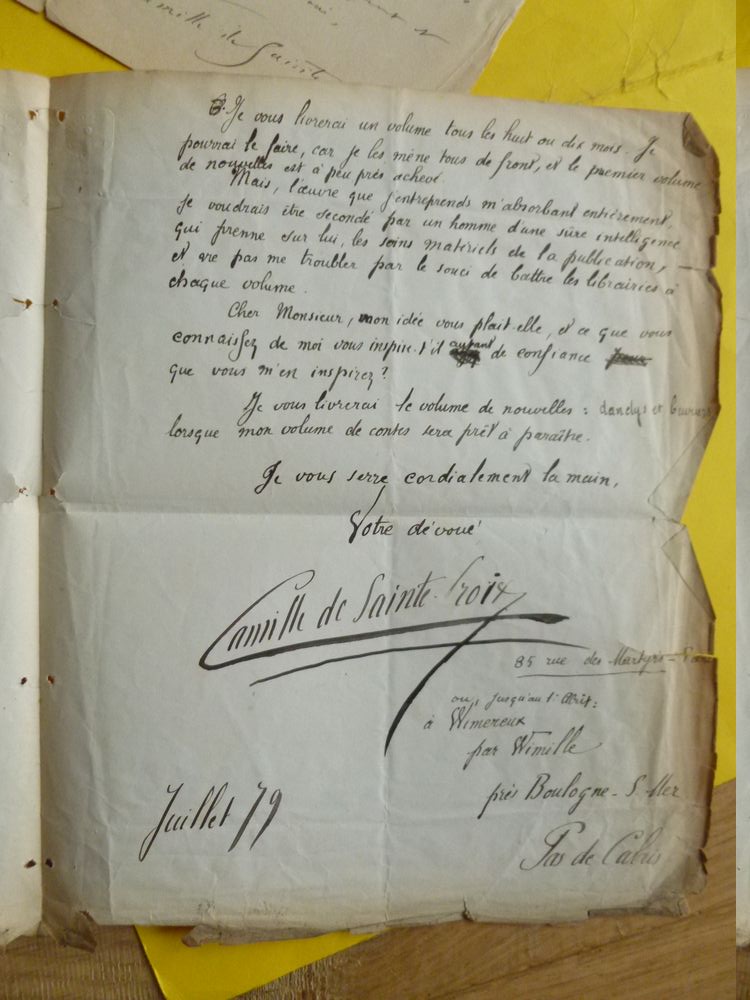 Camille de Sainte
6. Je vous livrerai un volume tous les huit ou dix mois. Je
pourrai le faire, car je les mène tous de front, et le premier volume
de nouvelles est à peu près achevé.
Mais, l'œuvre que j'entreprends m'absorbant entièrement,
je voudrais être secondé par un homme d'une sûre intelligence
qui prenne sur lui, les soins matériels de la publication, —
et ne pas me troubler par le souci de battre les librairies à
chaque volume.
Cher Monsieur, mon idée vous plait-elle, et ce que vous
connaissez de moi vous inspire-t'il autant de confiance
que vous m'en inspirez ?
Je vous livrerai le volume de nouvelles : dandys et
lorsque mon volume de contes sera prêt à paraître.
Je vous serre cordialement la main,
Votre dévoué
Camille de Sainte-Croix
85 rue des Martyrs - Paris
ou, jusqu'au 1er Août :
à Wimereux
par Wimille
près Boulogne-S-Mer
Pas de Calais
Juillet 79